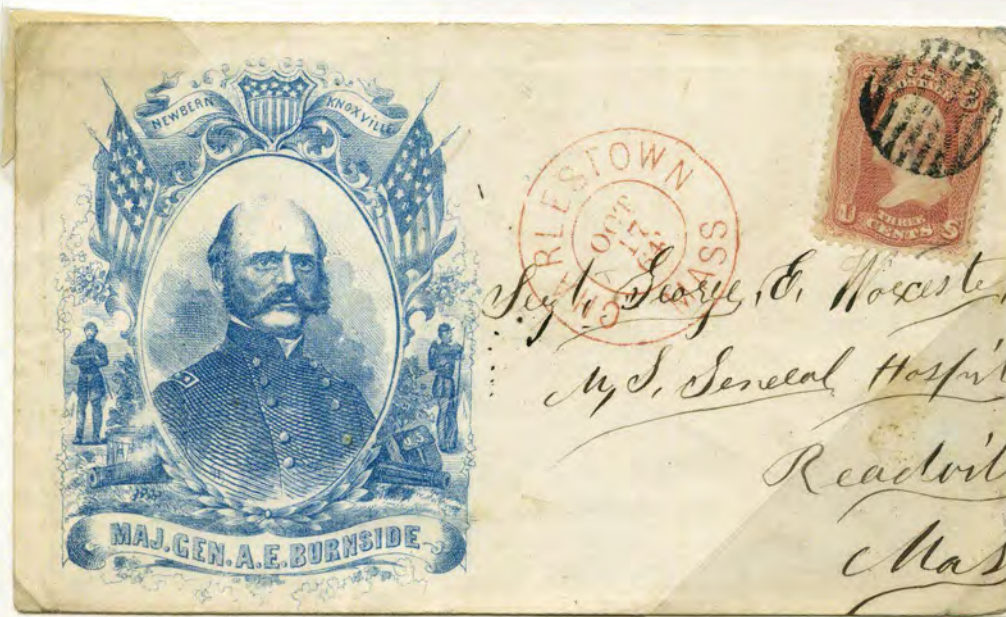 NEWBERN KNOXVILLE
MAJ. GEN. A. E. BURNSIDE
U.S
CHARLESTOWN MASS
OCT
17
64
U.S.
POSTAGE
U THREE S
CENTS
Sergt. George, E. Worceste
U, S, General Hospit
Readvil
Mas